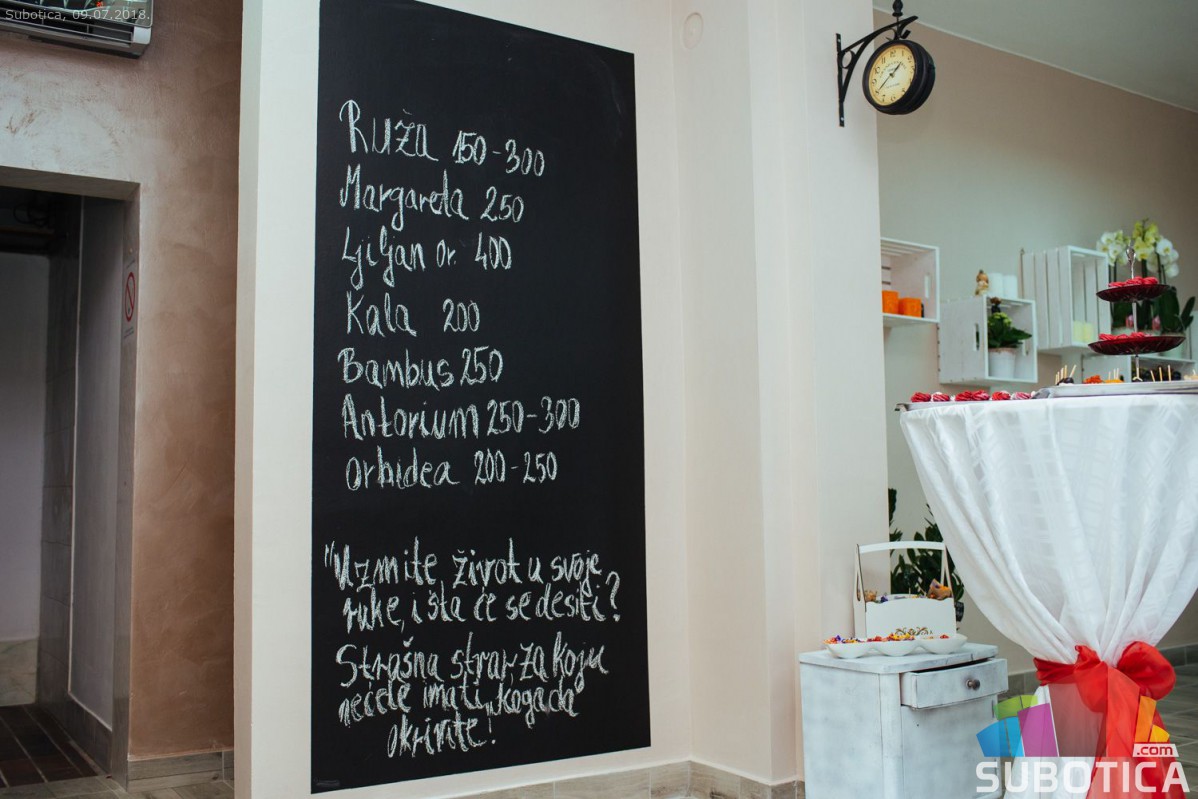 Subotica, 09.07.2018.
Ruža 150-300
Margareta 250
Ljiljan or. 400
Kala 200
Bambus 250
Antorium 250-300
Orhidea 200-250
"Uzmite život u svoje
ruke, i šta će se desiti?
Strašna stvar, za koju
nećete imati koga da
okrivite!
.com
SUBOTICA